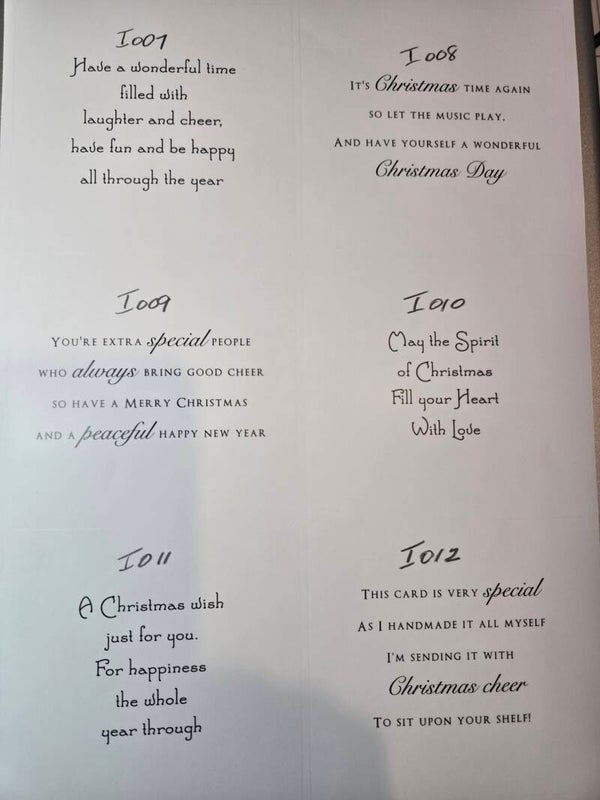 I007
Have a wonderful time
filled with
laughter and cheer,
have fun and be happy
all through the year
I008
IT'S Christmas TIME AGAIN
SO LET THE MUSIC PLAY,
AND HAVE YOURSELF A WONDERFUL
Christmas Day
I009
YOU'RE EXTRA special PEOPLE
WHO always BRING GOOD CHEER
SO HAVE A MERRY CHRISTMAS
AND A peaceful HAPPY NEW YEAR
I010
May the Spirit
of Christmas
Fill your Heart
With Love
I011
A Christmas wish
just for you.
For happiness
the whole
year through
I012
THIS CARD IS VERY special
AS I HANDMADE IT ALL MYSELF
I'M SENDING IT WITH
Christmas cheer
TO SIT UPON YOUR SHELF!